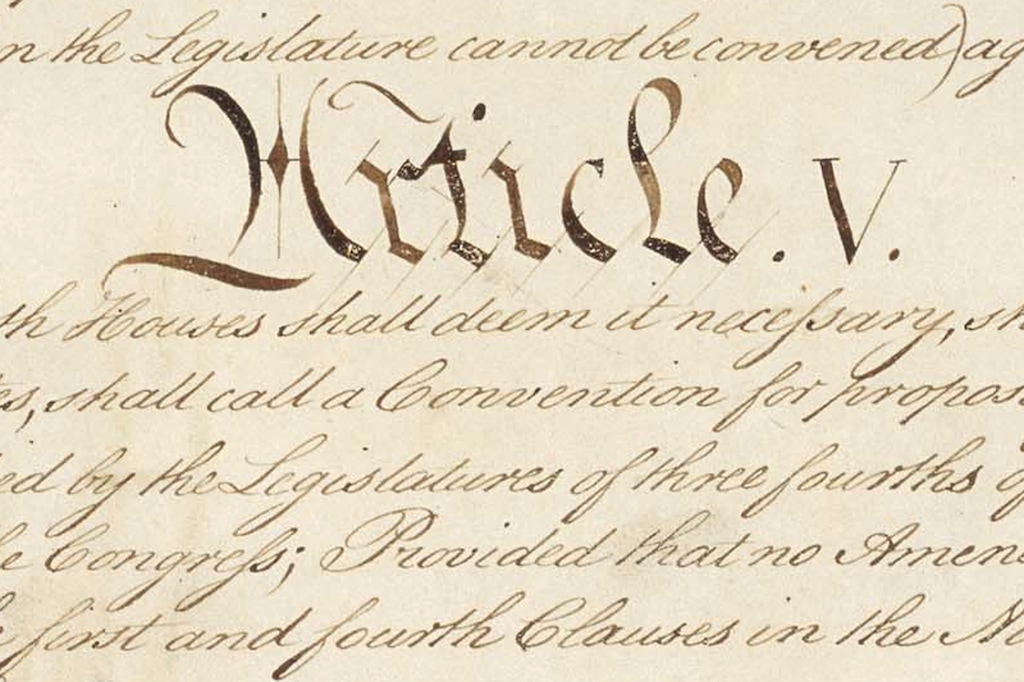 n the Legislature cannot be convened) ag
Article. V.
th Houses shall deem it neceſsary, sh
es, shall call a Convention for propos
ed by the Legislatures of three fourths of
e Congreſs; Provided that no Amen
first and fourth Clauses in the N